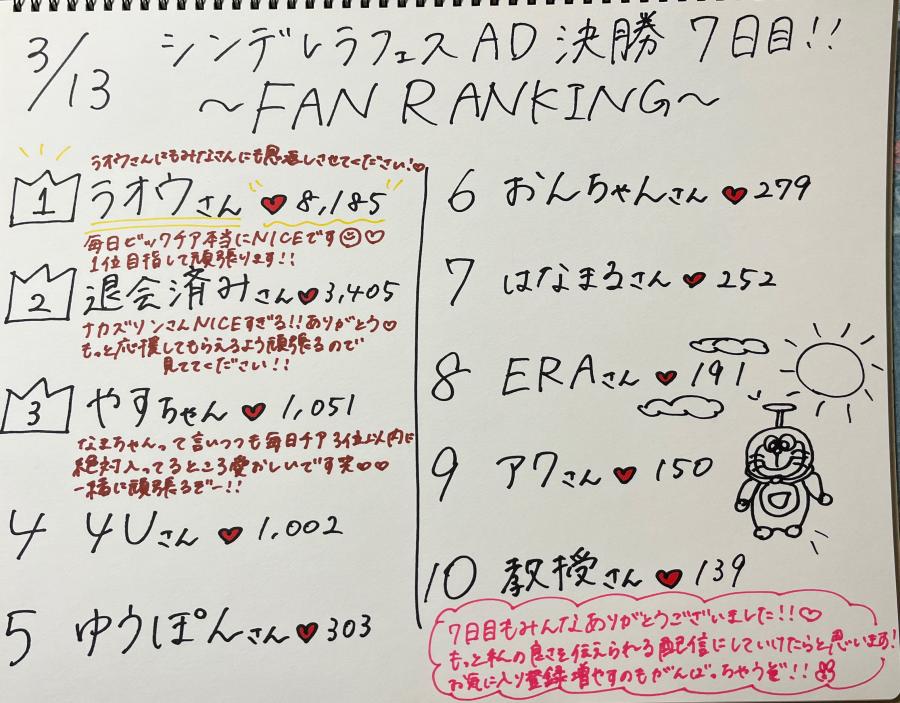 3/13
シンデレラフェスAD 決勝 7日目!!
～FAN RANKING～
ラオウさんにもみなさんにも恩返しさせてください!♡
1 ラオウさん ♥ 8,185
毎日ビックチア本当にNICEです☺♡
1位目指して頑張ります!!
2 退会済みさん ♥ 3,405
ナカズソンさんNICEすぎる!!ありがとう♡
もっと応援してもらえるよう頑張るので
見ててください!!
3 やすちゃん ♥ 1,051
なまちゃんって言いつつも毎日チア3位以内に
絶対入ってるところ愛おしいです笑♡♡
一緒に頑張るぞー!!
4 4Uさん ♥ 1,002
5 ゆうぽんさん ♥ 303
6 おんちゃんさん ♥ 279
7 はなまるさん ♥ 252
8 ERAさん ♥ 191
9 アワさん ♥ 150
10 教授さん ♥ 139
7日目もみんなありがとうございました!!♡
もっと私の良さを伝えられる配信にしていけたらと思います!
お気に入り登録増やすのもがんばっちゃうぞ!!